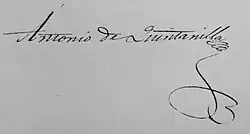 Antonio de Quintanilla